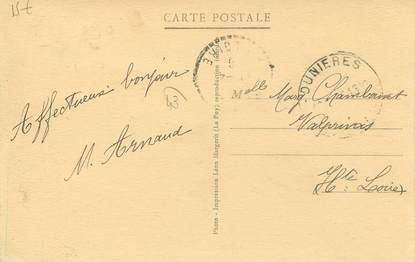 15 F
CARTE POSTALE
Affectueux bonjour
M. Arnaud
43
Photo - Impression Léon Margerit (Le Puy) reproduction
OUNIERES
Melle Marg. Chambonnet
Valprivas
Hte Loire